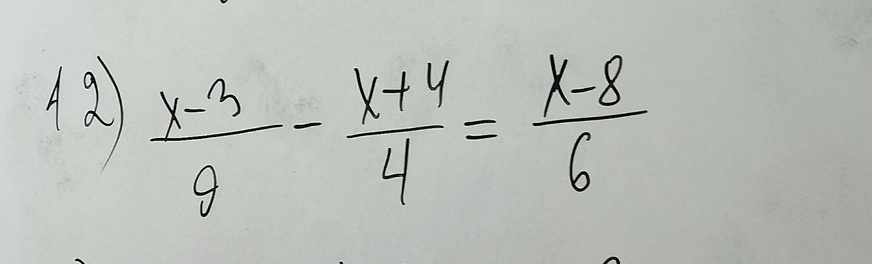 12) (x-3)/9 - (x+4)/4 = (x-8)/6